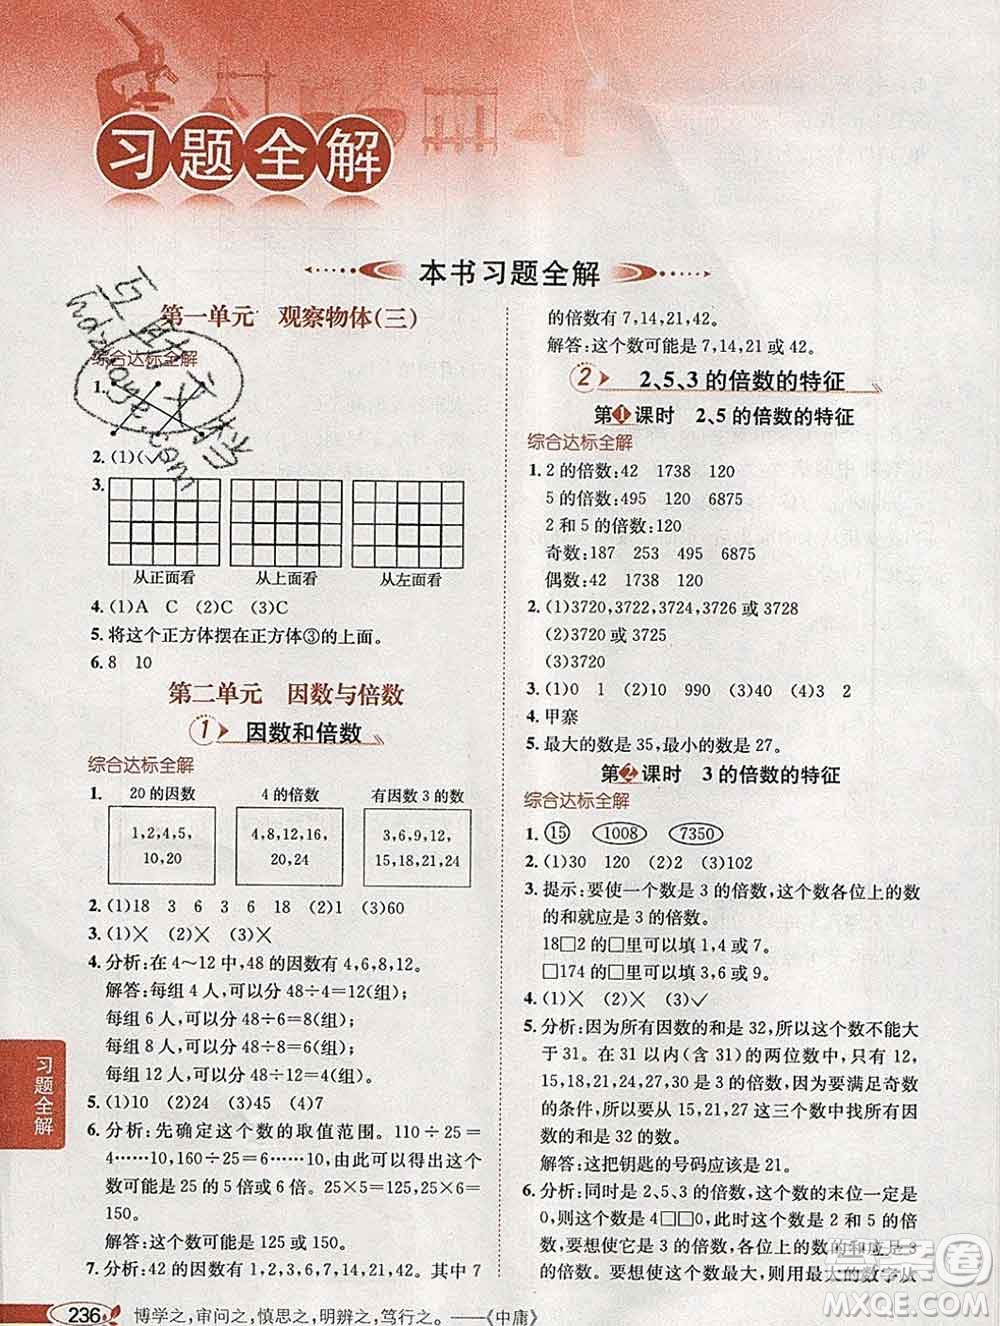 习题全解
本书习题全解
第一单元 观察物体(三)
综合达标全解
1.
2. (1)(✓
3.
从正面看 从上面看 从左面看
4. (1)A C (2)C (3)C
5. 将这个正方体摆在正方体③的上面。
6. 8 10
第二单元 因数与倍数
1 因数和倍数
综合达标全解
1. 20的因数 4的倍数 有因数3的数
1,2,4,5, 4,8,12,16, 3,6,9,12,
10,20 20,24 15,18,21,24
2. (1)18 3 6 3 6 18 (2)1 (3)60
3. (1)× (2)× (3)×
4. 分析:在4~12中,48的因数有4,6,8,12。
解答:每组4人,可以分48÷4=12(组);
每组6人,可以分48÷6=8(组);
每组8人,可以分48÷8=6(组);
每组12人,可以分48÷12=4(组)。
5. (1)10 (2)24 (3)45 (4)7
6. 分析:先确定这个数的取值范围。110÷25=
4……10,160÷25=6……10,由此可知,这个
数可能是25的5倍或6倍。25×5=125,25×6=
150。
解答:这个数可能是125或150。
7. 分析:42的因数有1,2,3,6,7,14,21,42。其中7
的倍数有7,14,21,42。
解答:这个数可能是7,14,21或42。
2 2、5、3的倍数的特征
第1课时 2、5的倍数的特征
综合达标全解
1. 2的倍数:42 1738 120
5的倍数:495 120 6875
2和5的倍数:120
奇数:187 253 495 6875
偶数:42 1738 120
2. (1)3720,3722,3724,3726或3728
(2)3720或3725
(3)3720
3. (1)0 1 (2)10 990 (3)20 (4)3 2
4. 甲寨
5. 最大的数是35,最小的数是27。
第2课时 3的倍数的特征
综合达标全解
1. 15 1008 7350
2. (1)30 120 (2)2 (3)102
3. 提示:要使一个数是3的倍数,这个数各位上的数
的和就应是3的倍数。
18□2的□里可以填1,4或7。
□174的□里可以填3,6或9。
4. (1)× (2)× (3)✓
5. 分析:因为所有因数的和是32,所以这个数不能大
于31。在31以内(含31)的两位数中,只有12,
15,18,21,24,27,30是3的倍数,因为要满足奇数
的条件,所以找出15,21,27这三个数中所有因
数的和是32的数。
解答:这把钥匙的号码应该是21。
6. 分析:同时是2、5、3的倍数,这个数的末位一定是
0,则这个数是4□□0,此时这个数是2和5的倍
数,要想使它是3的倍数,各位上的数的和应是3
的倍数,要想使这个数最大,则用最大的数字从
习题全解
236 博学之,审问之,慎思之,明辨之,笃行之。——《中庸》
答案圈
MXQE.COM